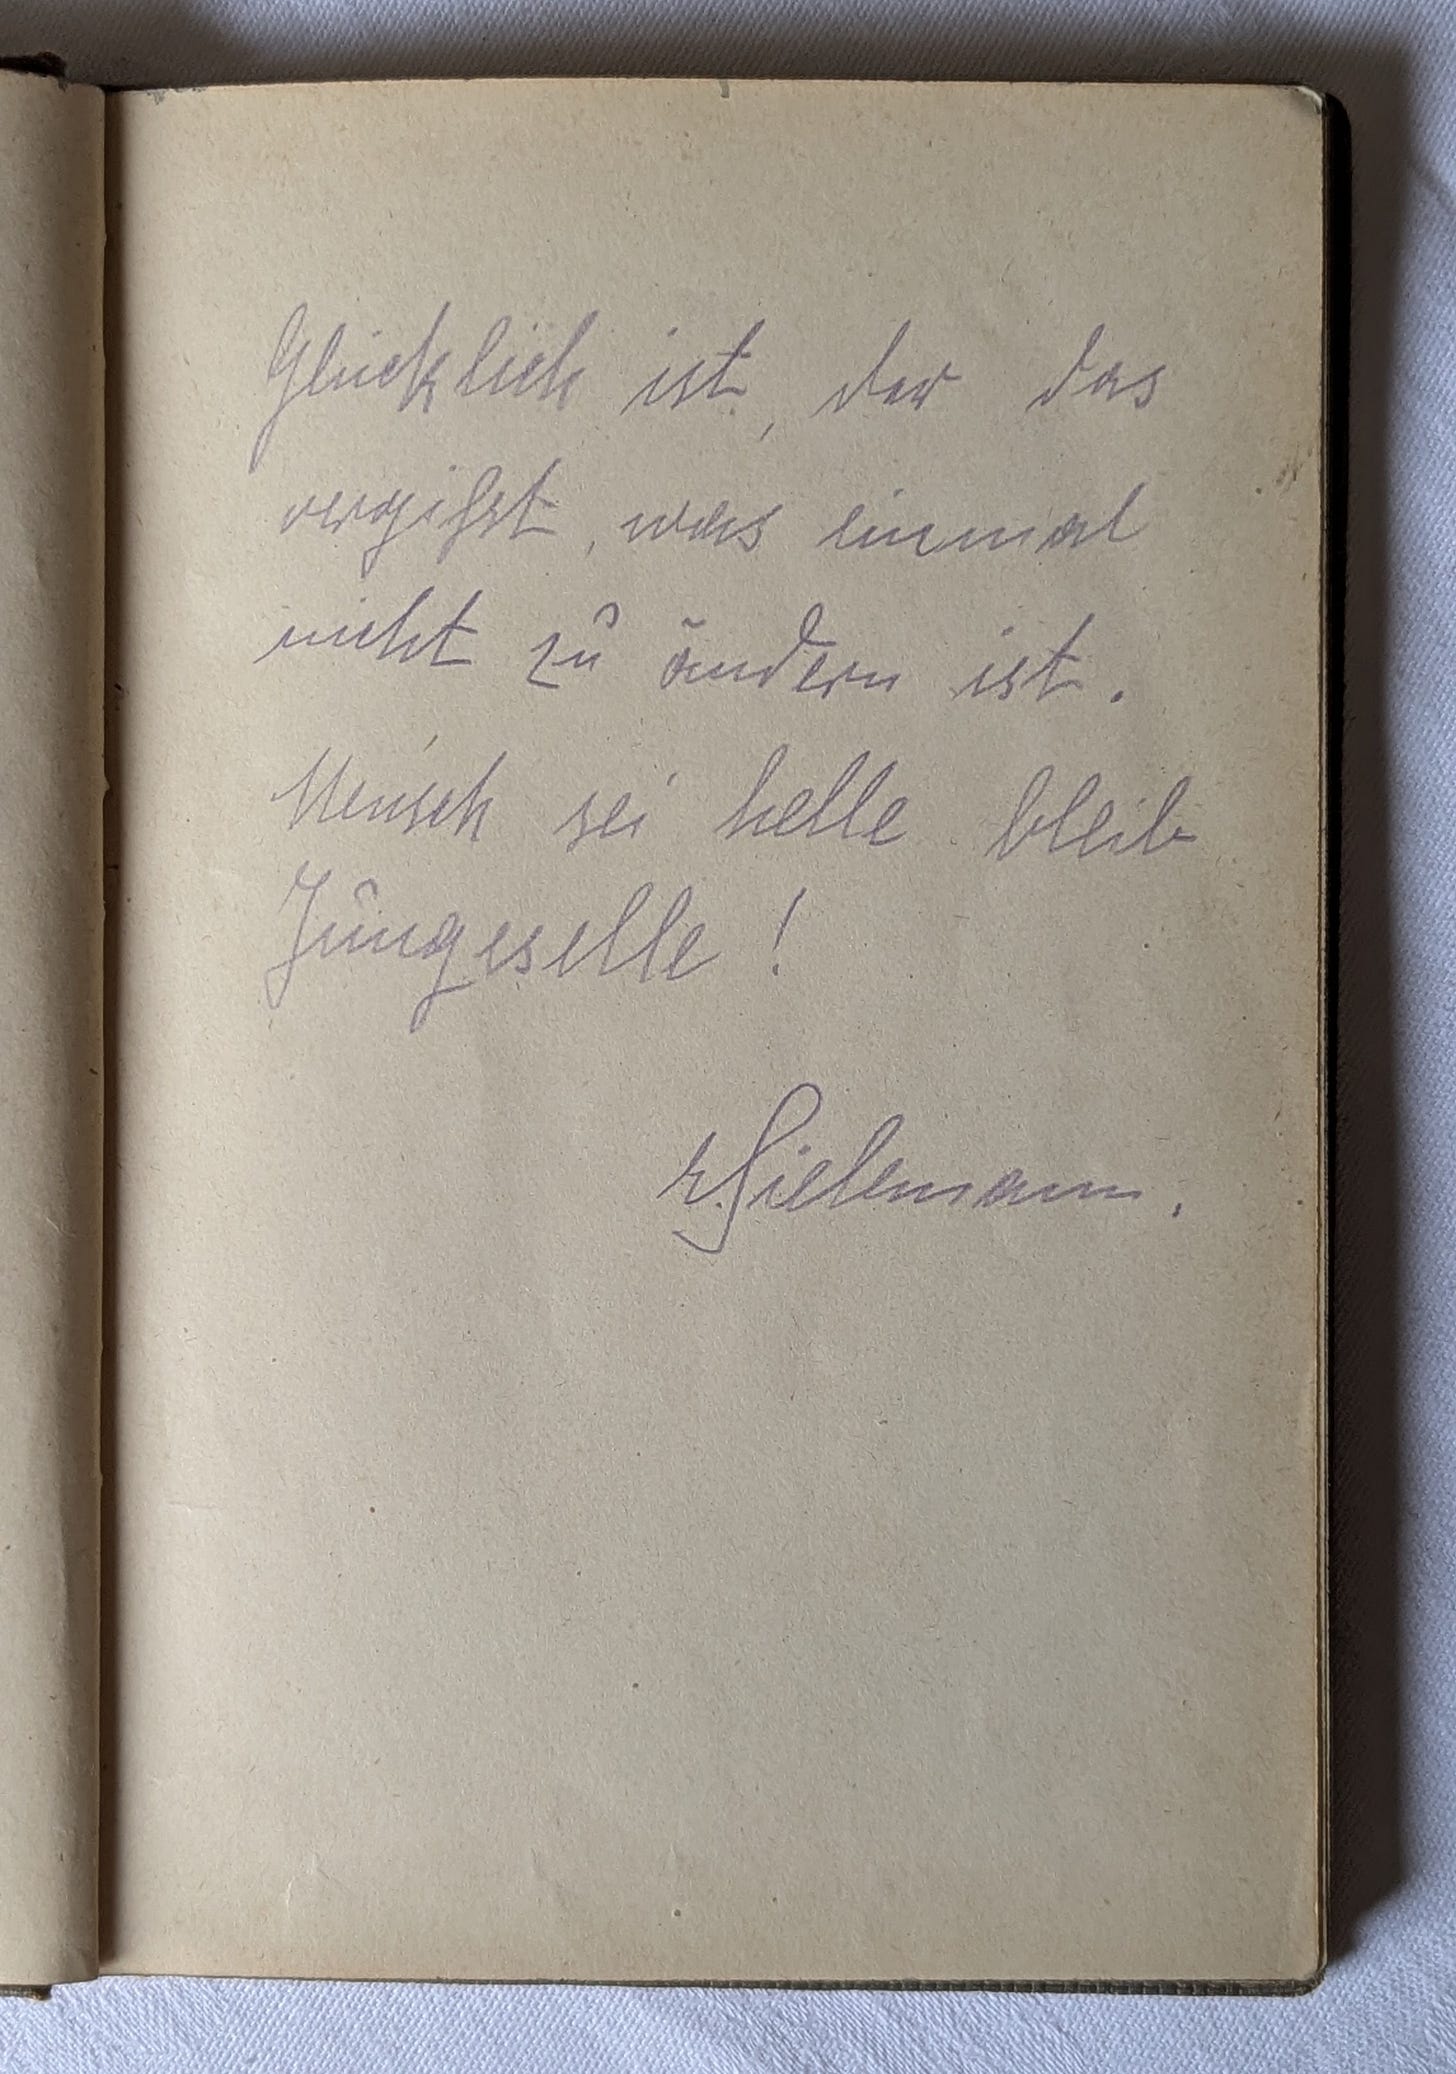 Glücklich ist, der das
vergißt, was einmal
nicht zu ändern ist.
Mensch sei helle bleib
Jungeselle!
Sielemann.